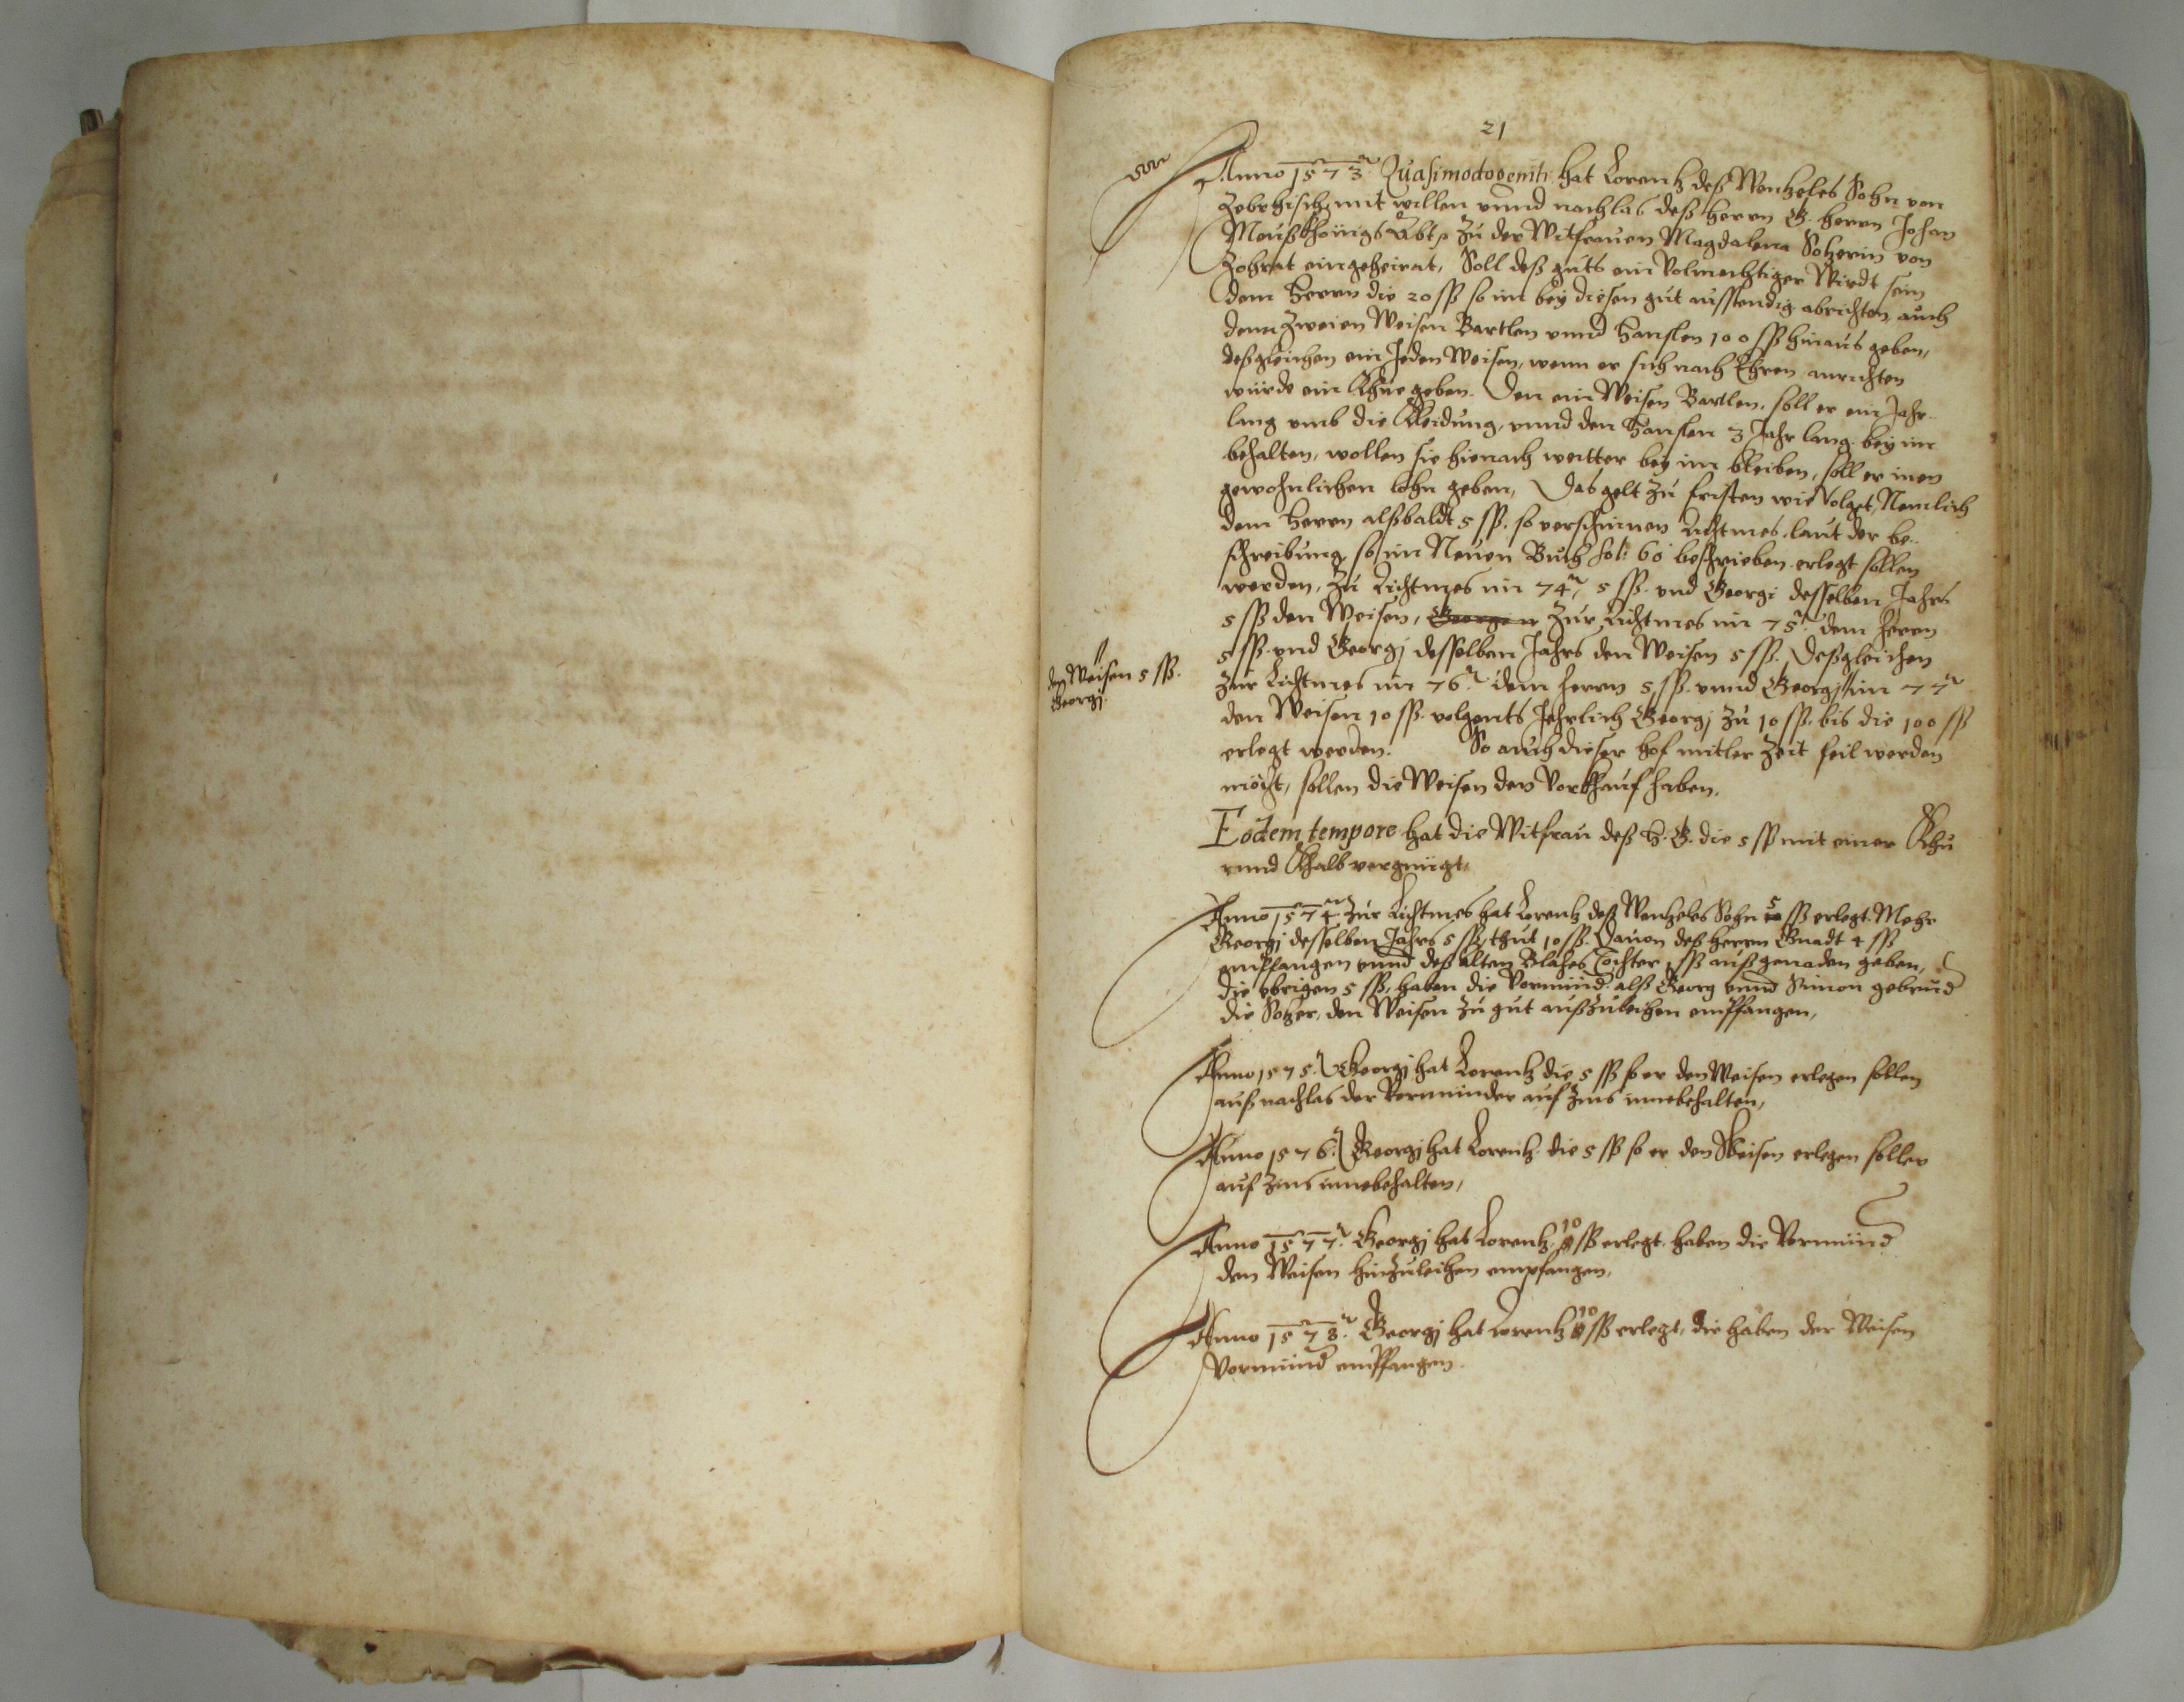 21
Anno 1573 Quasimodogeniti hat Lorentz deß Wentzeles Sohn von
mit willen vnnd nachlas deß herrn G. herrn Johan
Abts zu der Witfrauen Magdalena Soherin von
eingeheirat, Soll deß guts ein Volmechtiger Wirdt sein
dem Herrn die 20 ſß so im bey diesen gut aussstendig abrichten, auch
denn Zweien Weisen Bartlen vnnd Hanslen 100 ſß hinaus geben,
deßgleichen ein Jeden Weisen, wenn er sich nach Ehren anrichten
würde ein Khue geben. Den ein Weisen Bartlen, soll er ein Jahr
lang vmb die Kleidung, vnnd den Hanslen 3 Jahr lang bey im
behalten, wollen sie hienach weitter bey im bleiben, soll er inen
gewohnlichen lohn geben, Das gelt zu fristen wie Volget, Nemlich
dem Herrn alßbaldt 5 ſß. so verschinen Lichtmes laut der be-
schreibung so im Neuen Buch fol: 60 beschrieben erlegt sollen
werden, Zu Lichtmes im 74 5 ſß. vnd Georgi desselben Jahrs
5 ſß den Weisen, Zur Lichtmes im 75. dem herrn
5 ſß. vnd Georgj desselben Jahrs den Weisen 5 ſß. Deßgleichen
den Weisen 5 ſß.
Georgj.
Zur Lichtmes im 76. dem herrn 5 ſß. vnnd Georgj im 77
den Weisen 10 ſß. volgents Jehrlich Georgj zu 10 ſß. bis die 100 ſß
erlegt werden. So auch dieser hof mitler Zeit feil werden
möcht, sollen die Weisen den Vorkhauf haben.
Eodem tempore hat die Witfrau deß H. G. die 5 ſß mit einer Khu
vnnd Khalb vergnügt,
Anno 1574 Zur Lichtmes hat Lorentz deß Wentzeles Sohn 5 ſß erlegt. Mehr
Georgj desselben Jahrs 5 ſß, thut 10 ſß. Dauon deß herrn Gnadt 4 ſß
empffangen vnnd deß alten Blahes Tochter 1 ſß auß genaden geben,
die vbrigen 5 ſß, haben die Vormünd. alß Georg vnnd Simon gebrüd
die Soher, den Weisen zu gut außzuleihen empffangen,
Anno 1575. Georgj hat Lorentz die 5 ſß so er den Weisen erlegen sollen
auß nachlas der Vormünder auf Zins innebehalten,
Anno 1576. Georgj hat Lorentz die 5 ſß so er den Weisen erlegen sollen
auf Zins innebehalten,
Anno 1577. Georgj hat Lorentz 10 ſß erlegt, haben die Vormünd
den Weisen hinzuleihen empfangen,
Anno 1578. Georgj hat Lorentz 10 ſß erlegt, die haben der Weisen
Vormünd empffangen.